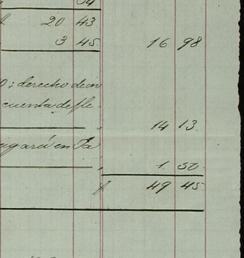 20 43
3 45 16 98
0; derecho de un
cuenta de fle
14 13
ugará en Pa
1 50
49 45